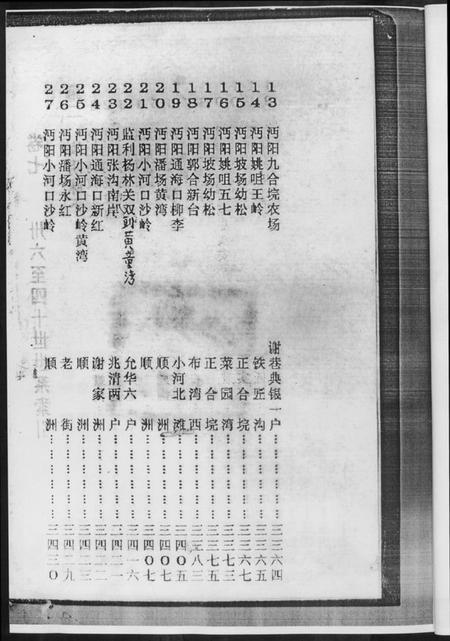 13 沔阳九合垸农场 谢巷典银一户……三三六四
14 沔阳姚咀王岭 铁匠沟……三三六五
15 沔阳坡场幼松 正合垸……三三六七
16 沔阳姚咀五七 菜园湾……三三七三
17 沔阳坡场幼松 正合垸……三三七五
18 沔阳郭合新台 布湾西……三三八三
19 沔阳通海口柳李 小河北滩……三四〇五
20 沔阳潘场黄湾 顺洲……三四〇七
21 沔阳小河口沙岭 顺洲……三四〇七
22 监利杨林关双剅黄童湾 允华六户……三四一六
23 沔阳张沟南岸 兆清两户……三四二一
24 沔阳通海口新红 谢家洲……三四二二
25 沔阳小河口沙岭黄湾 顺洲……三四二三
26 沔阳潘场永红 老街……三四二九
27 沔阳小河口沙岭 顺洲……三四三〇